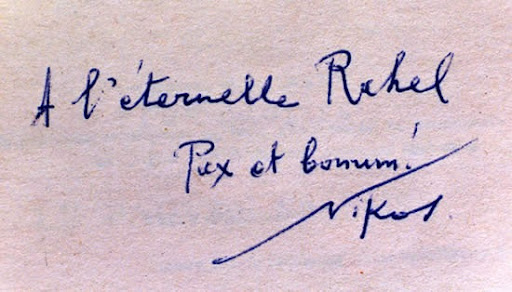 A l'éternelle Rahel
Pax et bonum!
Nikos.